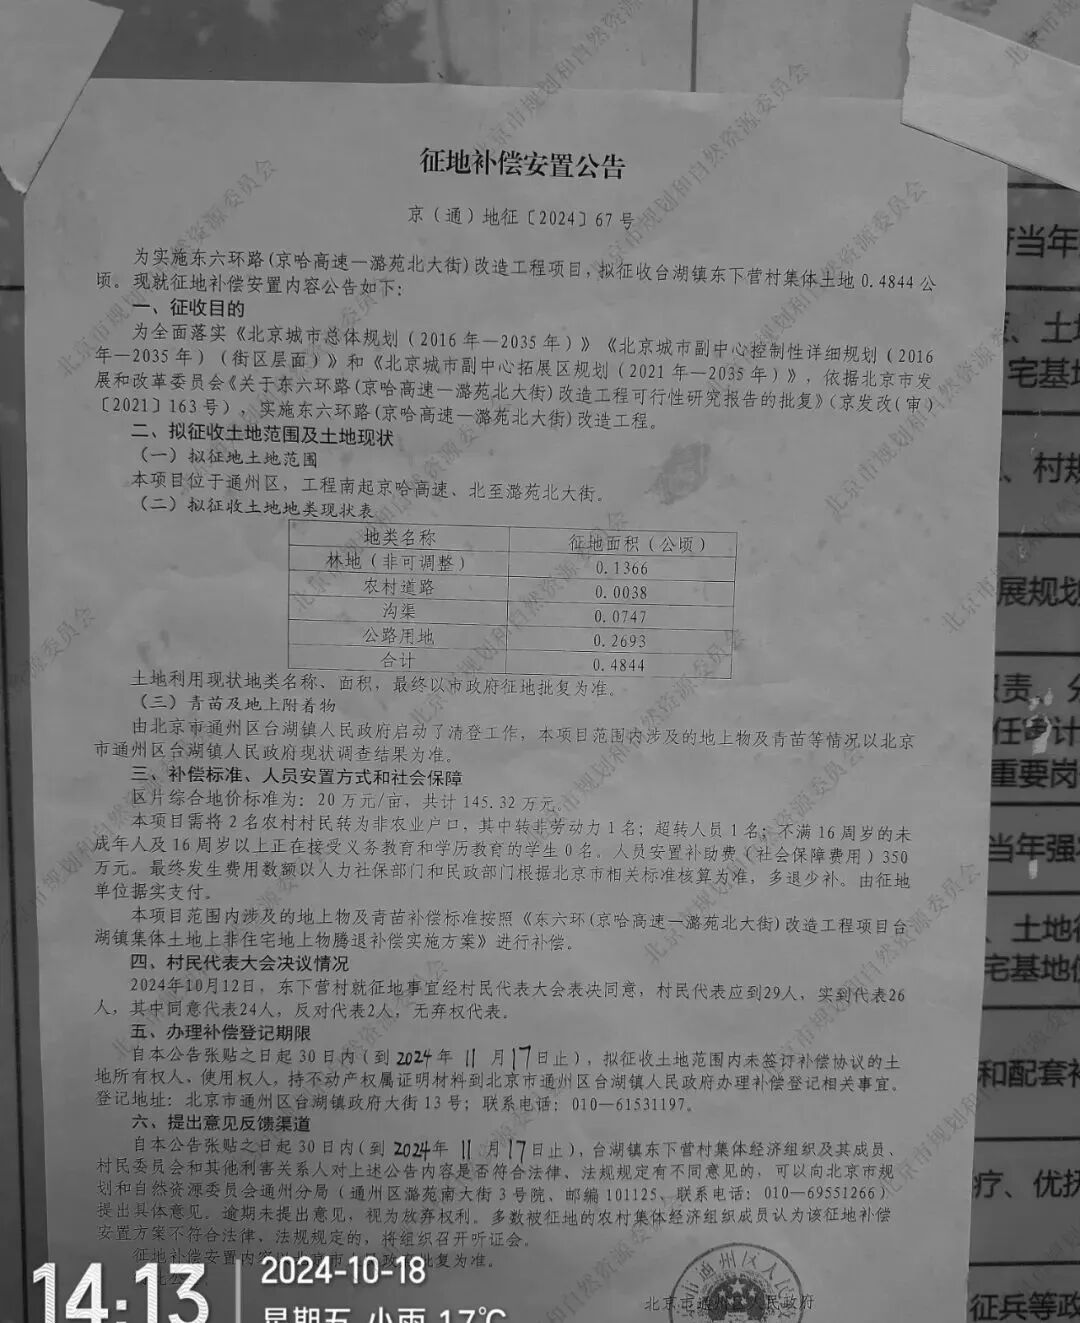 征地补偿安置公告
京（通）地征〔2024〕67号
为实施东六环路(京哈高速—潞苑北大街)改造工程项目，拟征收台湖镇东下营村集体土地0.4844公
顷。现就征地补偿安置内容公告如下：
一、征收目的
为全面落实《北京城市总体规划（2016年—2035年）》《北京城市副中心控制性详细规划（2016
年—2035年）（街区层面）》和《北京城市副中心拓展区规划（2021年—2035年）》，依据北京市发
展和改革委员会《关于东六环路(京哈高速—潞苑北大街)改造工程可行性研究报告的批复》（京发改(审)
〔2021〕163号），实施东六环路(京哈高速—潞苑北大街)改造工程。
二、拟征收土地范围及土地现状
（一）拟征地土地范围
本项目位于通州区，工程南起京哈高速、北至潞苑北大街。
（二）拟征收土地地类现状表
地类名称 征地面积（公顷）
林地（非可调整） 0.1366
农村道路 0.0038
沟渠 0.0747
公路用地 0.2693
合计 0.4844
土地利用现状地类名称、面积，最终以市政府征地批复为准。
（三）青苗及地上附着物
由北京市通州区台湖镇人民政府启动了清登工作，本项目范围内涉及的地上物及青苗等情况以北京
市通州区台湖镇人民政府现状调查结果为准。
三、补偿标准、人员安置方式和社会保障
区片综合地价标准为：20万元/亩，共计145.32万元。
本项目需将2名农村村民转为非农业户口，其中转非劳动力1名；超转人员1名；不满16周岁的未
成年人及16周岁以上正在接受义务教育和学历教育的学生0名。人员安置补助费（社会保障费用）350
万元。最终发生费用数额以人力社保部门和民政部门根据北京市相关标准核算为准，多退少补。由征地
单位据实支付。
本项目范围内涉及的地上物及青苗补偿标准按照《东六环(京哈高速—潞苑北大街)改造工程项目台
湖镇集体土地上非住宅地上物腾退补偿实施方案》进行补偿。
四、村民代表大会决议情况
2024年10月12日，东下营村就征地事宜经村民代表大会表决同意，村民代表应到29人，实到代表26
人，其中同意代表24人，反对代表2人，无弃权代表。
五、办理补偿登记期限
自本公告张贴之日起30日内（到2024年11月17日止），拟征收土地范围内未签订补偿协议的土
地所有权人、使用权人，持不动产权属证明材料到北京市通州区台湖镇人民政府办理补偿登记相关事宜。
登记地址：北京市通州区台湖镇政府大街13号；联系电话：010—61531197。
六、提出意见反馈渠道
自本公告张贴之日起30日内（到2024年11月17日止），台湖镇东下营村集体经济组织及其成员、
村民委员会和其他利害关系人对上述公告内容是否符合法律、法规规定有不同意见的，可以向北京市规
划和自然资源委员会通州分局（通州区潞苑南大街3号院、邮编101125、联系电话：010—69551266）
提出具体意见。逾期未提出意见，视为放弃权利。多数被征地的农村集体经济组织成员认为该征地补偿
安置方案不符合法律、法规规定的，将组织召开听证会。
征地补偿安置内容以北京市人民政府批复为准。
北京市通州区人民政府
14:13
2024-10-18
星期五 小雨 17℃
北京市规划和自然资源委员会
当年
、土地
宅基地
、村规
展规划
职责、分
任审计
重要岗
当年强
、土地征
宅基地使
和配套补
疗、优抚
征兵等政